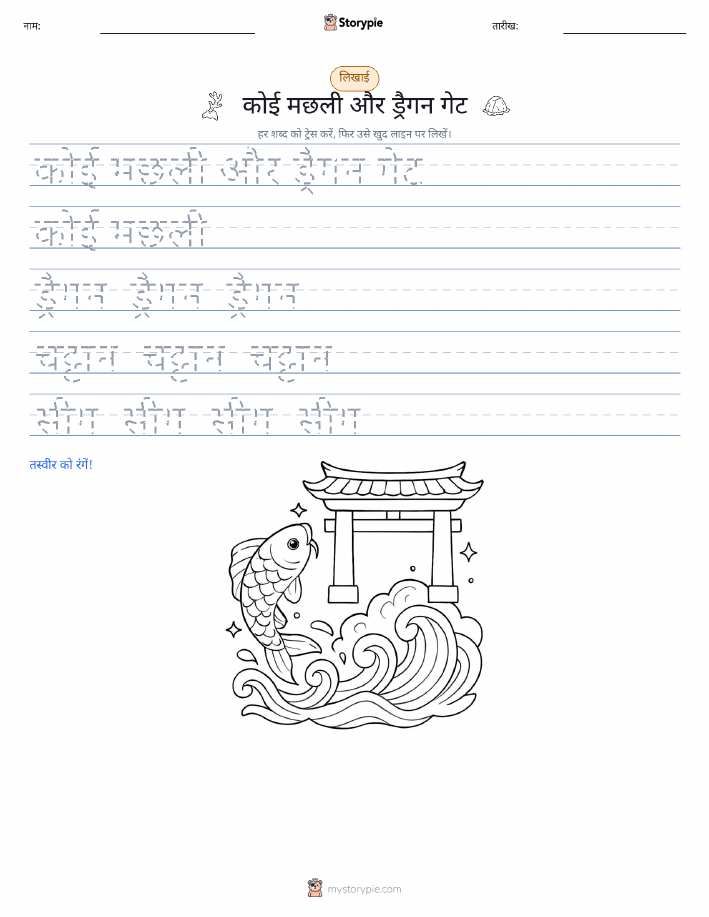 नाम:
Storypie
तारीख:
लिखाई
कोई मछली और ड्रैगन गेट
हर शब्द को ट्रेस करें, फिर उसे खुद लाइन पर लिखें।
कोई मछली और ड्रैगन गेट
कोई मछली
ड्रैगन ड्रैगन ड्रैगन
चट्टान चट्टान चट्टान
सींग सींग सींग सींग
तस्वीर को रंगें!
mystorypie.com